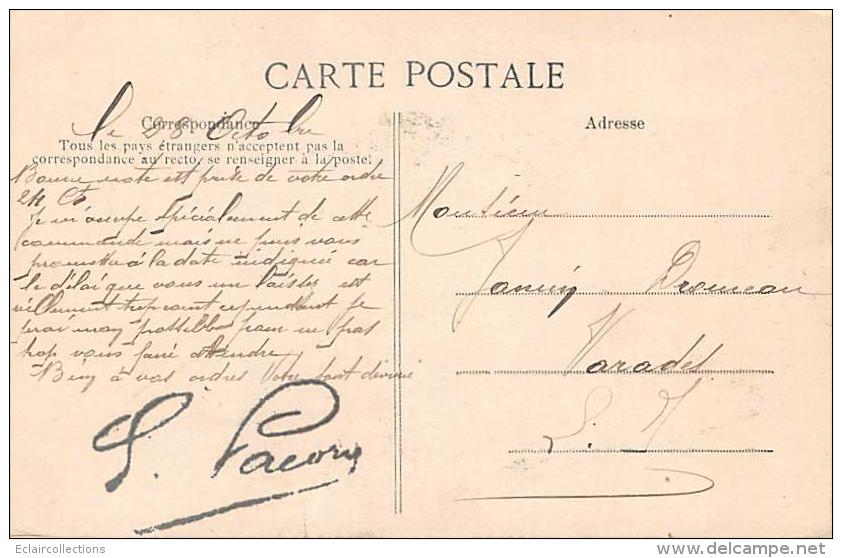 CARTE POSTALE
Correspondance
Le 28 Octobre
Tous les pays étrangers n'acceptent pas la
correspondance au recto, se renseigner à la poste.
Bonne note est prise de votre ordre
24 Ct
Je m'occupe spécialement de cette
commande mais ne puis vous
promettre à la date indiquée car
le délai que vous me laissez est
réellement trop court cependant je
ferai mon possible pour ne pas
trop vous faire attendre
Bien à vos ordres Votre tout dévoué
Adresse
Monsieur
Drouneau
Varades
L. I
Eclaircollections
www.delcampe.net